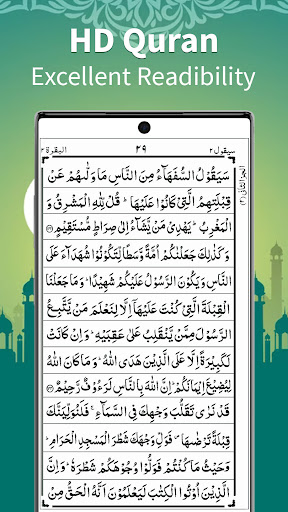 HD Quran
Excellent Readibility
سيقول ٢
٢٩
البقرة ٢
الجزء الثاني (٢)
سَيَقُوْلُ السُّفَهَآءُ مِنَ النَّاسِ مَا وَلّٰىهُمْ عَنْ
قِبْلَتِهِمُ الَّتِيْ كَانُوْا عَلَيْهَا ؕ قُلْ لِّلّٰهِ الْمَشْرِقُ وَ
الْمَغْرِبُ ؕ يَهْدِيْ مَنْ يَّشَآءُ اِلٰى صِرَاطٍ مُّسْتَقِيْمٍ ﴿۱۴۲﴾
وَكَذٰلِكَ جَعَلْنٰكُمْ اُمَّةً وَّسَطًا لِّتَكُوْنُوْا شُهَدَآءَ عَلَى
النَّاسِ وَيَكُوْنَ الرَّسُوْلُ عَلَيْكُمْ شَهِيْدًا ؕ وَمَا جَعَلْنَا
الْقِبْلَةَ الَّتِيْ كُنْتَ عَلَيْهَآ اِلَّا لِنَعْلَمَ مَنْ يَّتَّبِعُ
الرَّسُوْلَ مِمَّنْ يَّنْقَلِبُ عَلٰى عَقِبَيْهِ ؕ وَاِنْ كَانَتْ
لَكَبِيْرَةً اِلَّا عَلَى الَّذِيْنَ هَدَى اللّٰهُ ؕ وَمَا كَانَ اللّٰهُ
لِيُضِيْعَ اِيْمَانَكُمْ ؕ اِنَّ اللّٰهَ بِالنَّاسِ لَرَءُوْفٌ رَّحِيْمٌ ﴿۱۴۳﴾
قَدْ نَرٰى تَقَلُّبَ وَجْهِكَ فِي السَّمَآءِ ۚ فَلَنُوَلِّيَنَّكَ
قِبْلَةً تَرْضٰىهَا ۪ فَوَلِّ وَجْهَكَ شَطْرَ الْمَسْجِدِ الْحَرَامِ ؕ
وَحَيْثُ مَا كُنْتُمْ فَوَلُّوْا وُجُوْهَكُمْ شَطْرَهٗ ؕ وَاِنَّ
الَّذِيْنَ اُوْتُوا الْكِتٰبَ لَيَعْلَمُوْنَ اَنَّهُ الْحَقُّ مِنْ